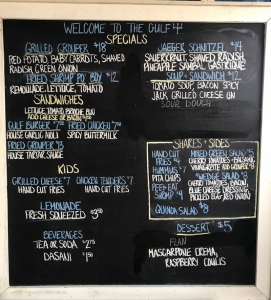 WELCOME TO THE GULF
SPECIALS
GRILLED GROUPER $18
RED POTATO, BABY CARROTS, SHAVED
RADISH, GREEN ONION
FRIED SHRIMP PO BOY $12
REMOULADE, LETTUCE, TOMATO
SANDWICHES
LETTUCE TOMATO BRIOCHE BUN
ADD CHEESE OR BACON
GULF BURGER $7 FRIED CHICKEN $7
HOUSE GARLIC AIOLI SPICY BUTTERMILK
FRIED GROUPER $13
HOUSE TARTAR SAUCE
KIDS
GRILLED CHEESE $7 CHICKEN TENDERS $7
HAND CUT FRIES HAND CUT FRIES
LEMONADE
FRESH SQUEEZED $3.50
BEVERAGES
TEA OR SODA $2.75
DASANI
JAEGER SCHNITZEL $14
SAUERKRAUT, SHAVED RADISH,
PINEAPPLE SAMBAL
SOUP + SANDWICH $12
TOMATO SOUP, BACON SPICY
JACK GRILLED CHEESE ON
SOUR DOUGH
SHARES + SIDES
HAND CUT
FRIES $4
HUMMUS $7
PITA CHIPS
PEEL + EAT
SHRIMP
MIXED GREEN SALAD $5
CHERRY TOMATOES, BALSAMIC
VINAIGRETTE
WEDGE SALAD $8
CHERRY TOMATOES, BACON,
BLUE CHEESE DRESSING
PICKLED RED ONION
QUINOA SALAD $8
DESSERT $5
FLAN
MASCARPONE CREMA,
RASPBERRY COULIS